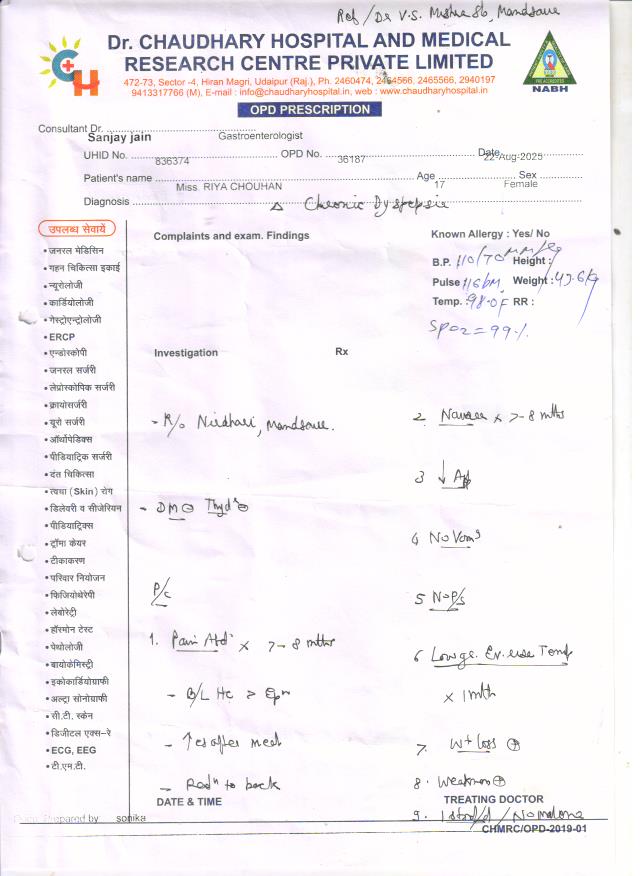 Ref / Dr V.S. Mishra Sb, Mandsaur
Dr. CHAUDHARY HOSPITAL AND MEDICAL
RESEARCH CENTRE PRIVATE LIMITED
472-73, Sector -4, Hiran Magri, Udaipur (Raj.), Ph. 2460474, 2464566, 2465566, 2940197
9413317766 (M), E-mail : info@chaudharyhospital.in, web : www.chaudharyhospital.in
NABH
OPD PRESCRIPTION
Consultant Dr. Sanjay jain Gastroenterologist
UHID No. 836374 OPD No. 36187 Date 22-Aug-2025
Patient's name Miss. RIYA CHOUHAN Age 17 Sex Female
Diagnosis Δ Chronic Dyspepsia
उपलब्ध सेवायें
• जनरल मेडिसिन
• गहन चिकित्सा इकाई
• न्यूरोलॉजी
• कार्डियोलॉजी
• गेस्ट्रोएन्ट्रोलोजी
• ERCP
• एन्डोस्कोपी
• जनरल सर्जरी
• लेप्रोस्कोपिक सर्जरी
• क्रायोसर्जरी
• यूरो सर्जरी
• ऑर्थोपेडिक्स
• पीडियाट्रिक सर्जरी
• दंत चिकित्सा
• त्वचा (Skin) रोग
• डिलेवरी व सीजेरियन
• पीडियाट्रिक्स
• ट्रॉमा केयर
• टीकाकरण
• परिवार नियोजन
• फिजियोथेरेपी
• लेबोरेट्री
• हॉरमोन टेस्ट
• पेथोलॉजी
• बायोकेमिस्ट्री
• इकोकार्डियोग्राफी
• अल्ट्रा सोनोग्राफी
• सी.टी. स्केन
• डिजीटल एक्स-रे
• ECG, EEG
• टी.एम.टी.
Complaints and exam. Findings
Known Allergy : Yes/ No
B.P. 110/70 mm/Hg Height :
Pulse 116 bpm Weight : 47.6 kg
Temp. : 98.0F RR :
SPO2 = 99%
Investigation
Rx
- R/o Nirdhari, Mandsaur.
- DM ⊖ Thyd ⊖
P/c
1. Pain Abd x 7-8 mths
- B/L Hc > Epn
- ↑es after meal
- Radn to back
2. Nausea x 7-8 mths
3 ↓ App
4 No Voms
5 No P/s
6 Low gr. Ev. rise Temp
x 1 mth
7. Wt loss ⊕
8. Weakness ⊕
9. / No malena
DATE & TIME
TREATING DOCTOR
Prepared by sonika
CHMRC/OPD-2019-01